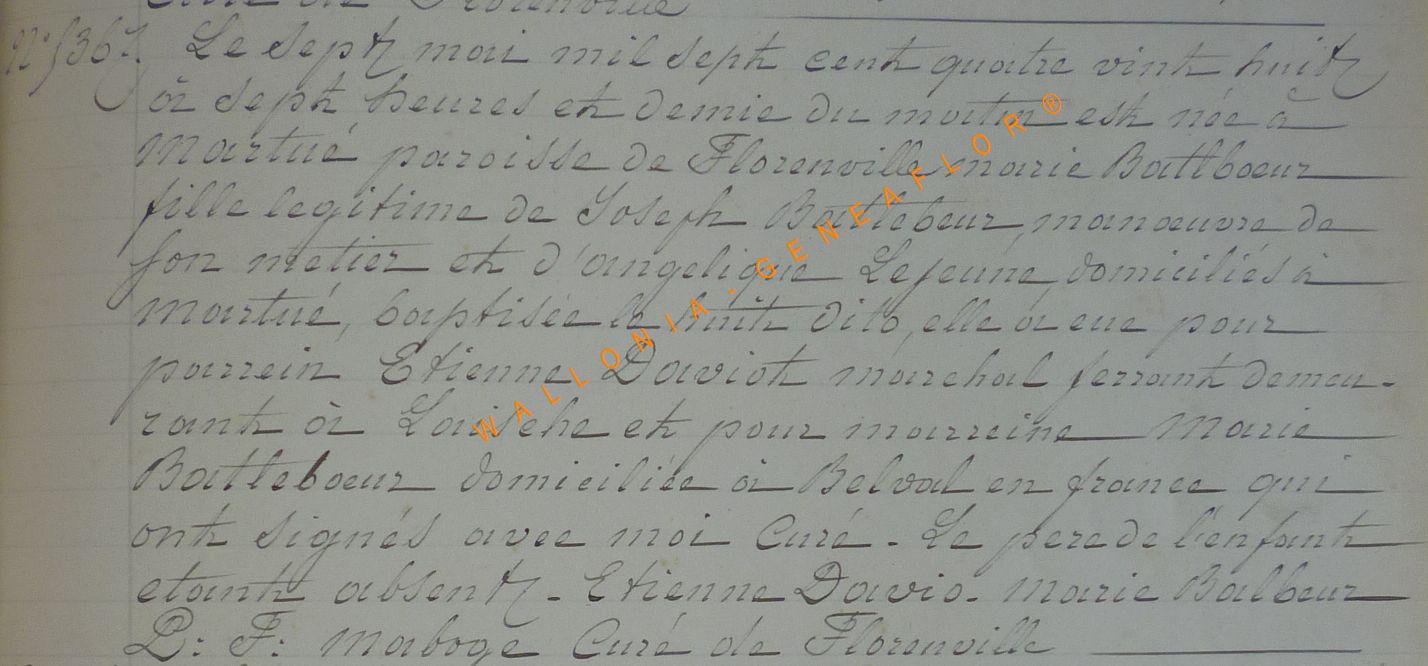 Curé de Florenville
N° 5367. Le sept mai mil sept cent quatre vint huit
à sept heures et demie du matin est née à
Martué paroisse de Florenville marie Batlboeur
fille legitime de Joseph Batlebeur, manœuvre de
son metier et d'angelique Lejeune, domiciliés à
Martué, baptisée le huit dito, elle a eue pour
parrein Etienne Daviot marchal ferrant demeu-
rant à Laische et pour marreine Marie
Batleboeur domiciliée à Belval en france qui
ont signés avec moi Curé. Le pere de l'enfant
etant absent. Etienne Davio. Marie Balbeur
P: F: Maboge Curé de Florenville
WALLONIA - GENEAFLOR ®